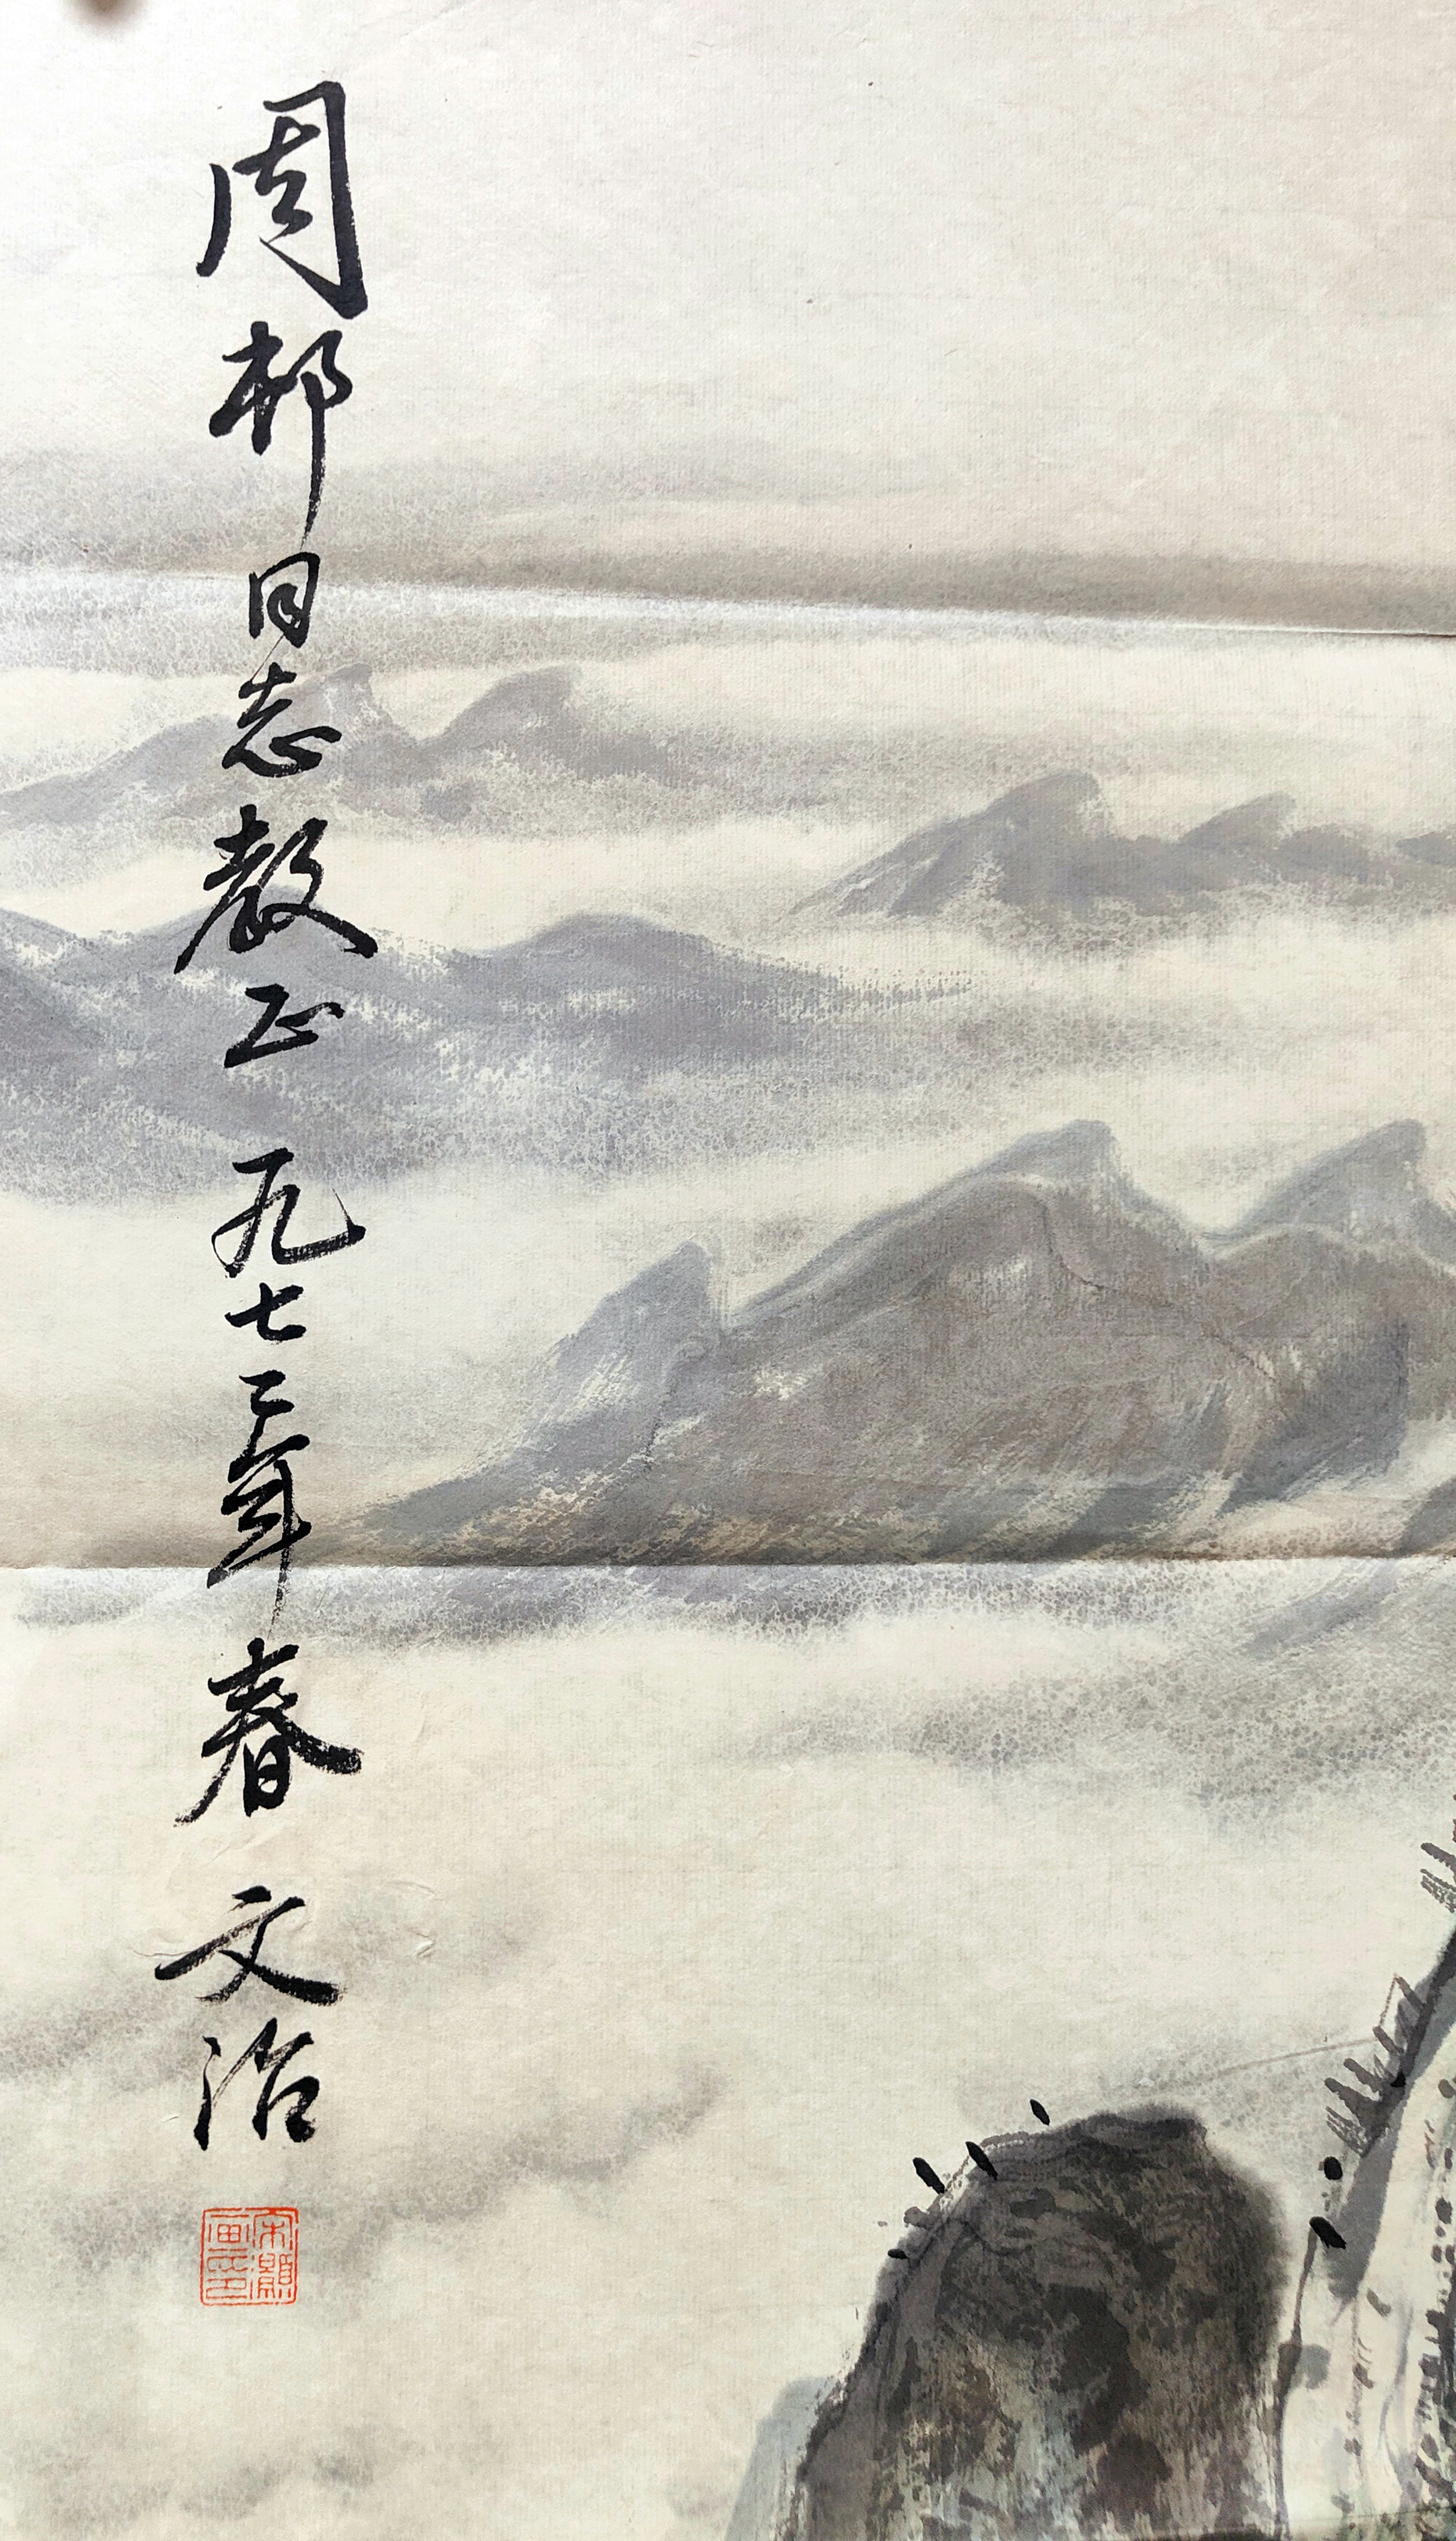 周邨同志教正 一九七三年春 文治